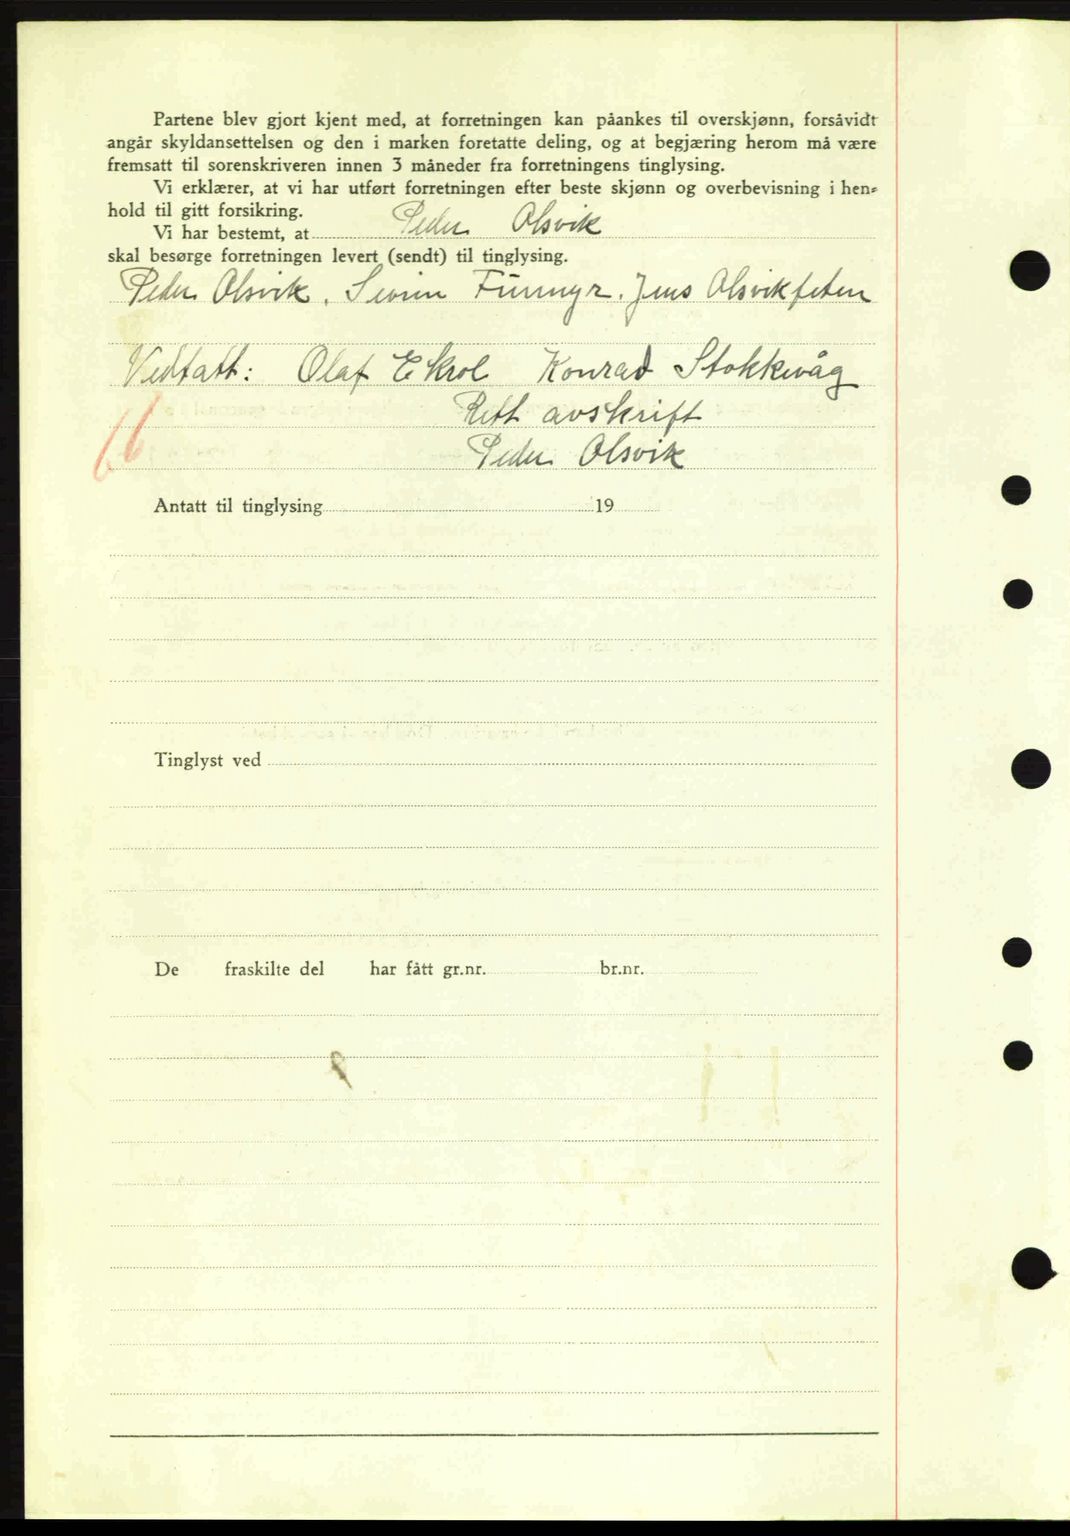 Partene blev gjort kjent med, at forretningen kan påankes til overskjønn, forsåvidt
angår skyldansettelsen og den i marken foretatte deling, og at begjæring herom må være
fremsatt til sorenskriveren innen 3 måneder fra forretningens tinglysing.
Vi erklærer, at vi har utført forretningen efter beste skjønn og overbevisning i hen-
hold til gitt forsikring.
Vi har bestemt, at Peder Olsvik
skal besørge forretningen levert (sendt) til tinglysing.
Peder Olsvik. Sivrin Furmyr. Jens Olsvikfeten
Vedtatt: Olaf Ekrol Konrad Stokkevåg
Rett avskrift
Peder Olsvik
Antatt til tinglysing 19
Tinglyst ved
De fraskilte del har fått gr.nr. br.nr.